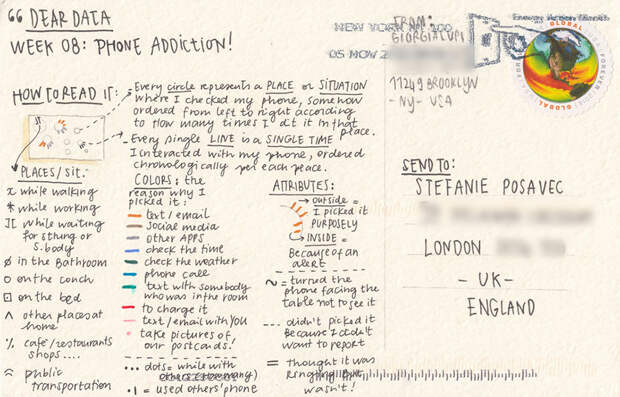 DEAR DATA
WEEK 08: PHONE ADDICTION!
HOW TO READ IT:
Every circle represents a PLACE or SITUATION
where I checked my phone, somehow
ordered from left to right according
to how many times I did it in that
place.
Every single LINE is a SINGLE TIME
I interacted with my phone, ordered
chronologically per each peace.
PLACES/sit.
x while walking
* while working
while waiting
for sthing or
s.body
ø in the bathroom
o on the couch
□ on the bed
^ other places at
home
٪ cafè/restaurants
shops....
≈ public
transportation
COLORS: the
reason why I
picked it:
text/email
social media
other APPS
check the time
check the weather
phone call
text with somebody
who was in the room
to charge it
text/email with YOU
take pictures of
our postcards.
... dots = while with
others (how many)
·| = used others' phone
ATTRIBUTES:
outside =
I picked it
PURPOSELY
INSIDE =
Because of an
alert
~ = turned the
phone facing the
table not to see it
--- didn't picked it
because I didn't
want to report
= thought it was
ringing but
wasn't!
FROM:
GIORGIA LUPI
11249 BROOKLYN
- NY - USA
NEW YORK NY 100
05 NOV 2
GLOBAL
FOREVER
SEND TO:
STEFANIE POSAVEC
LONDON
- UK -
ENGLAND